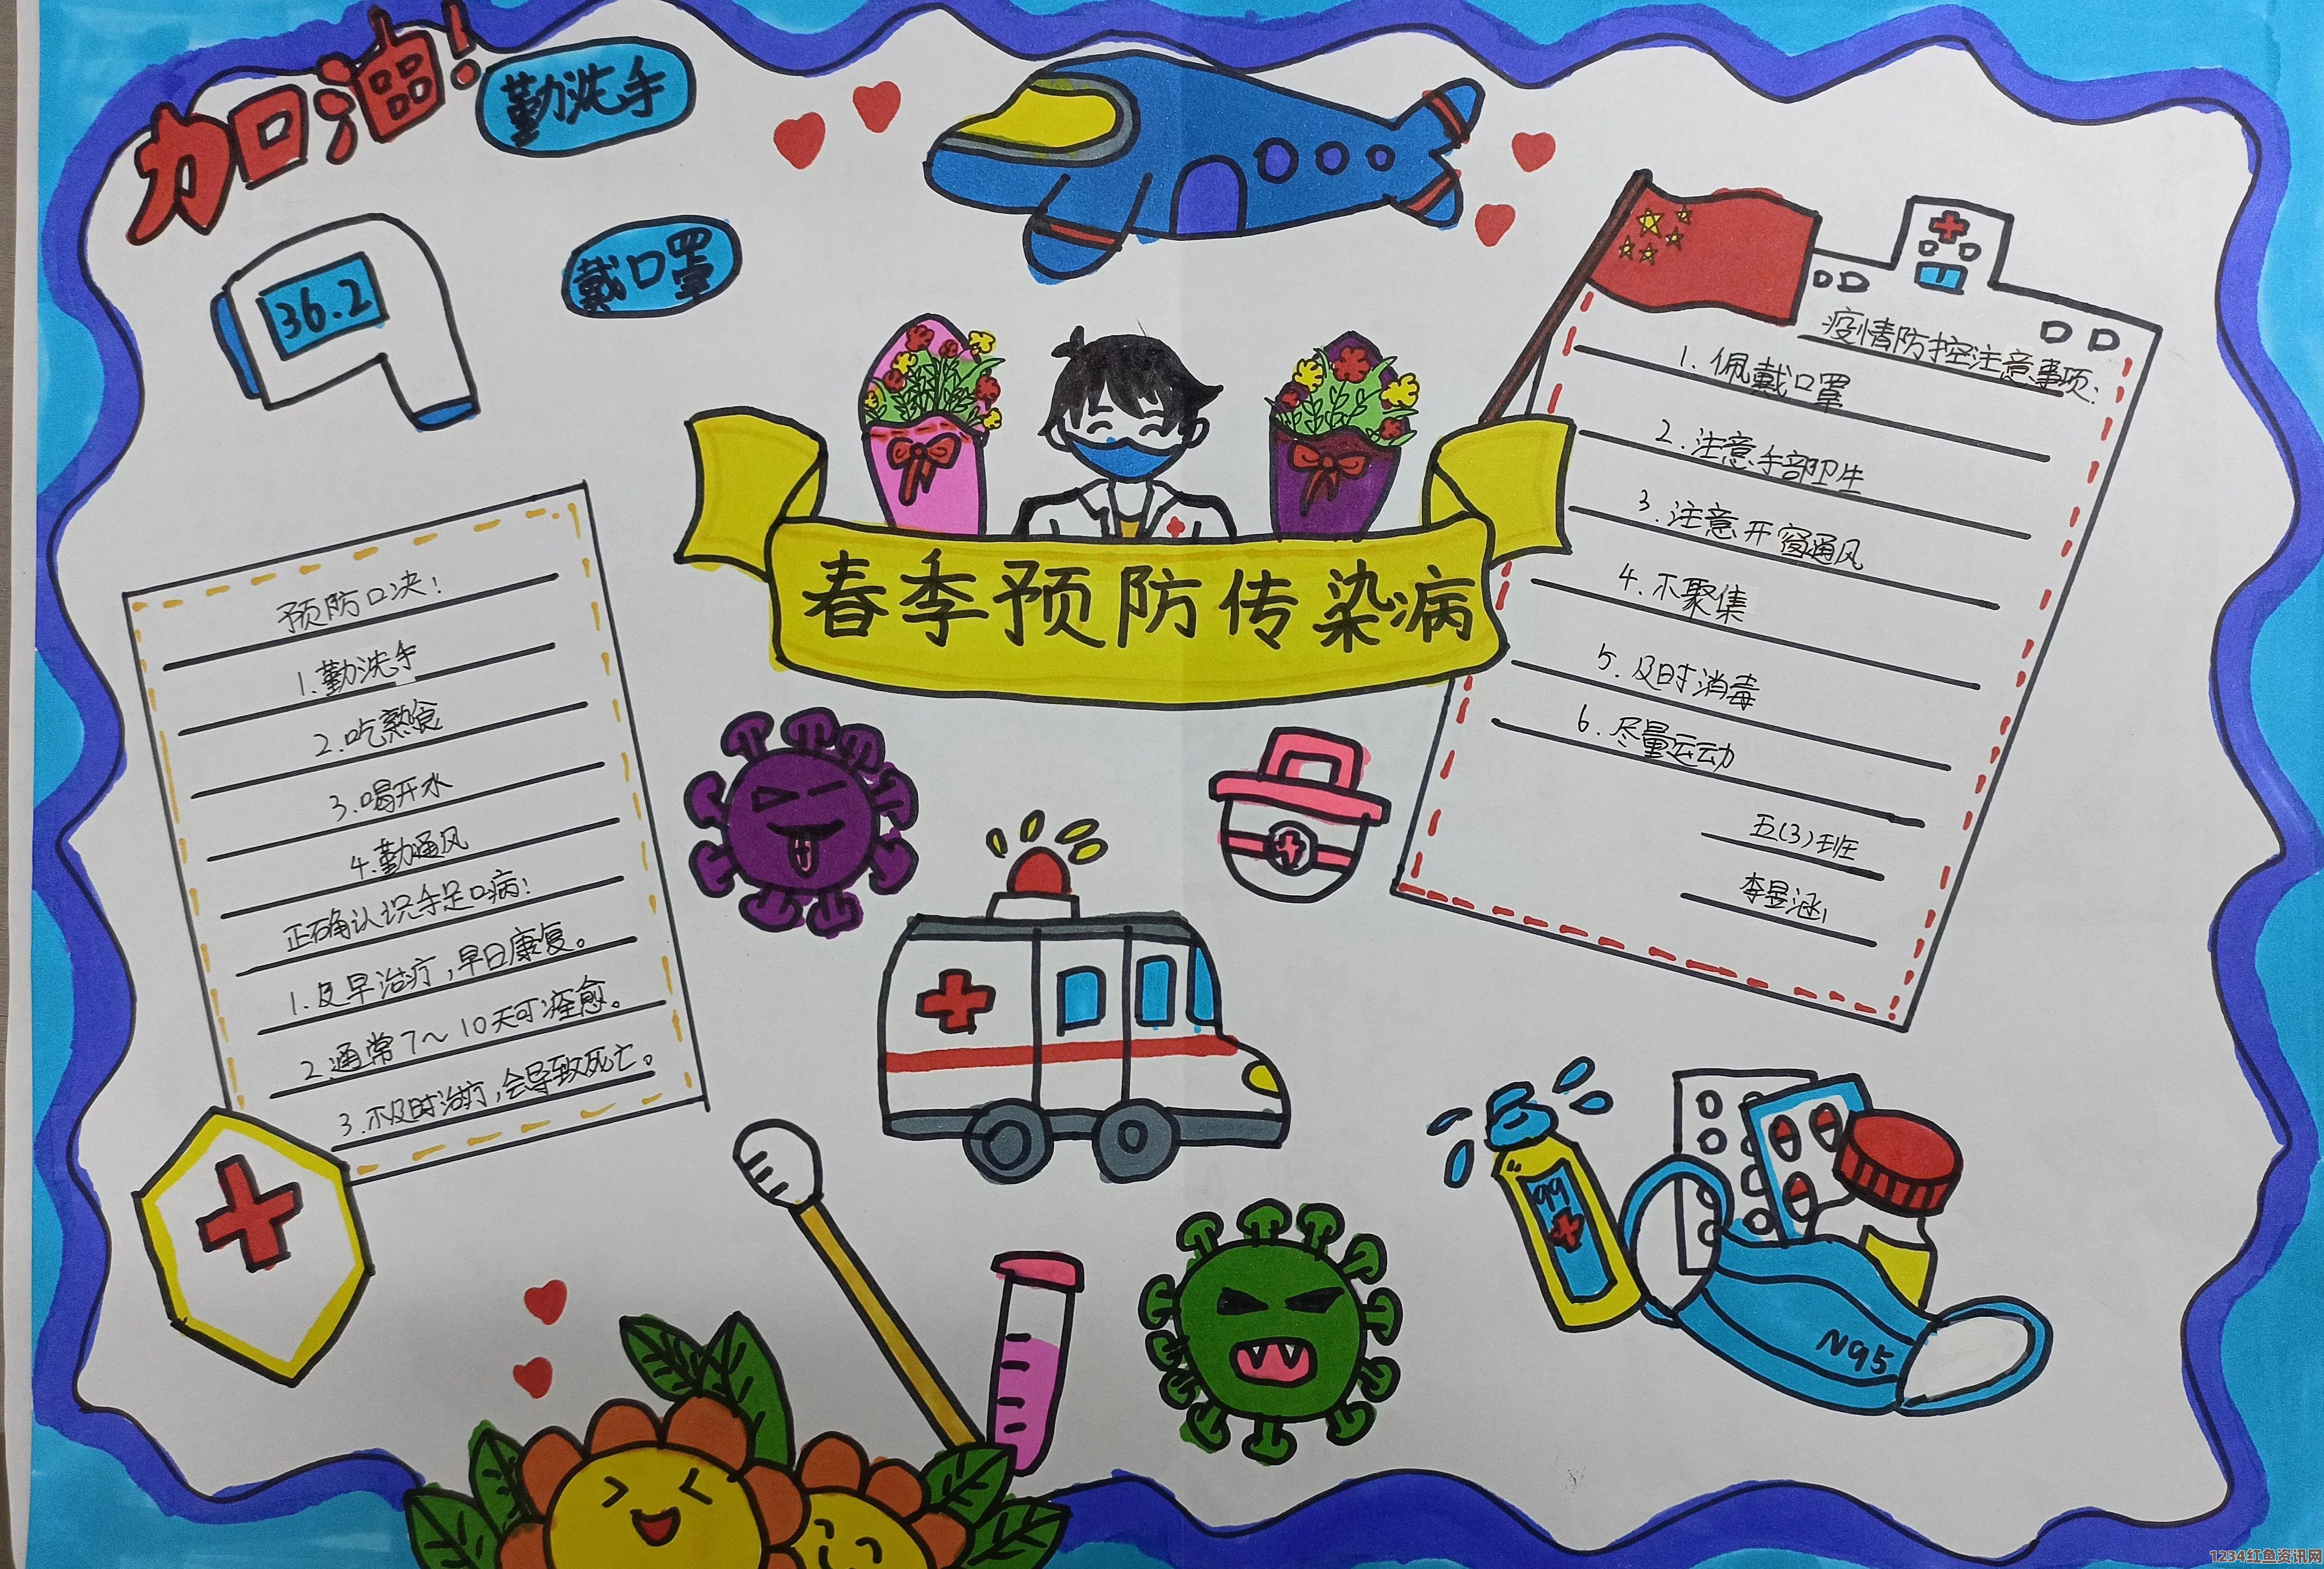 加油!
勤洗手
戴口罩
36.2
春季预防传染病
预防口决!
1.勤洗手
2.吃熟食
3.喝开水
4.勤通风
正确认识手足口病!
1.及早治疗,早日康复。
2.通常7~10天可痊愈。
3.不及时治疗,会导致死亡。
疫情防控注意事项:
1.佩戴口罩
2.注意手部卫生
3.注意开窗通风
4.不聚集
5.及时消毒
6.尽量运动
五(3)班
李昱涵
99
N95
1234红鱼资讯网